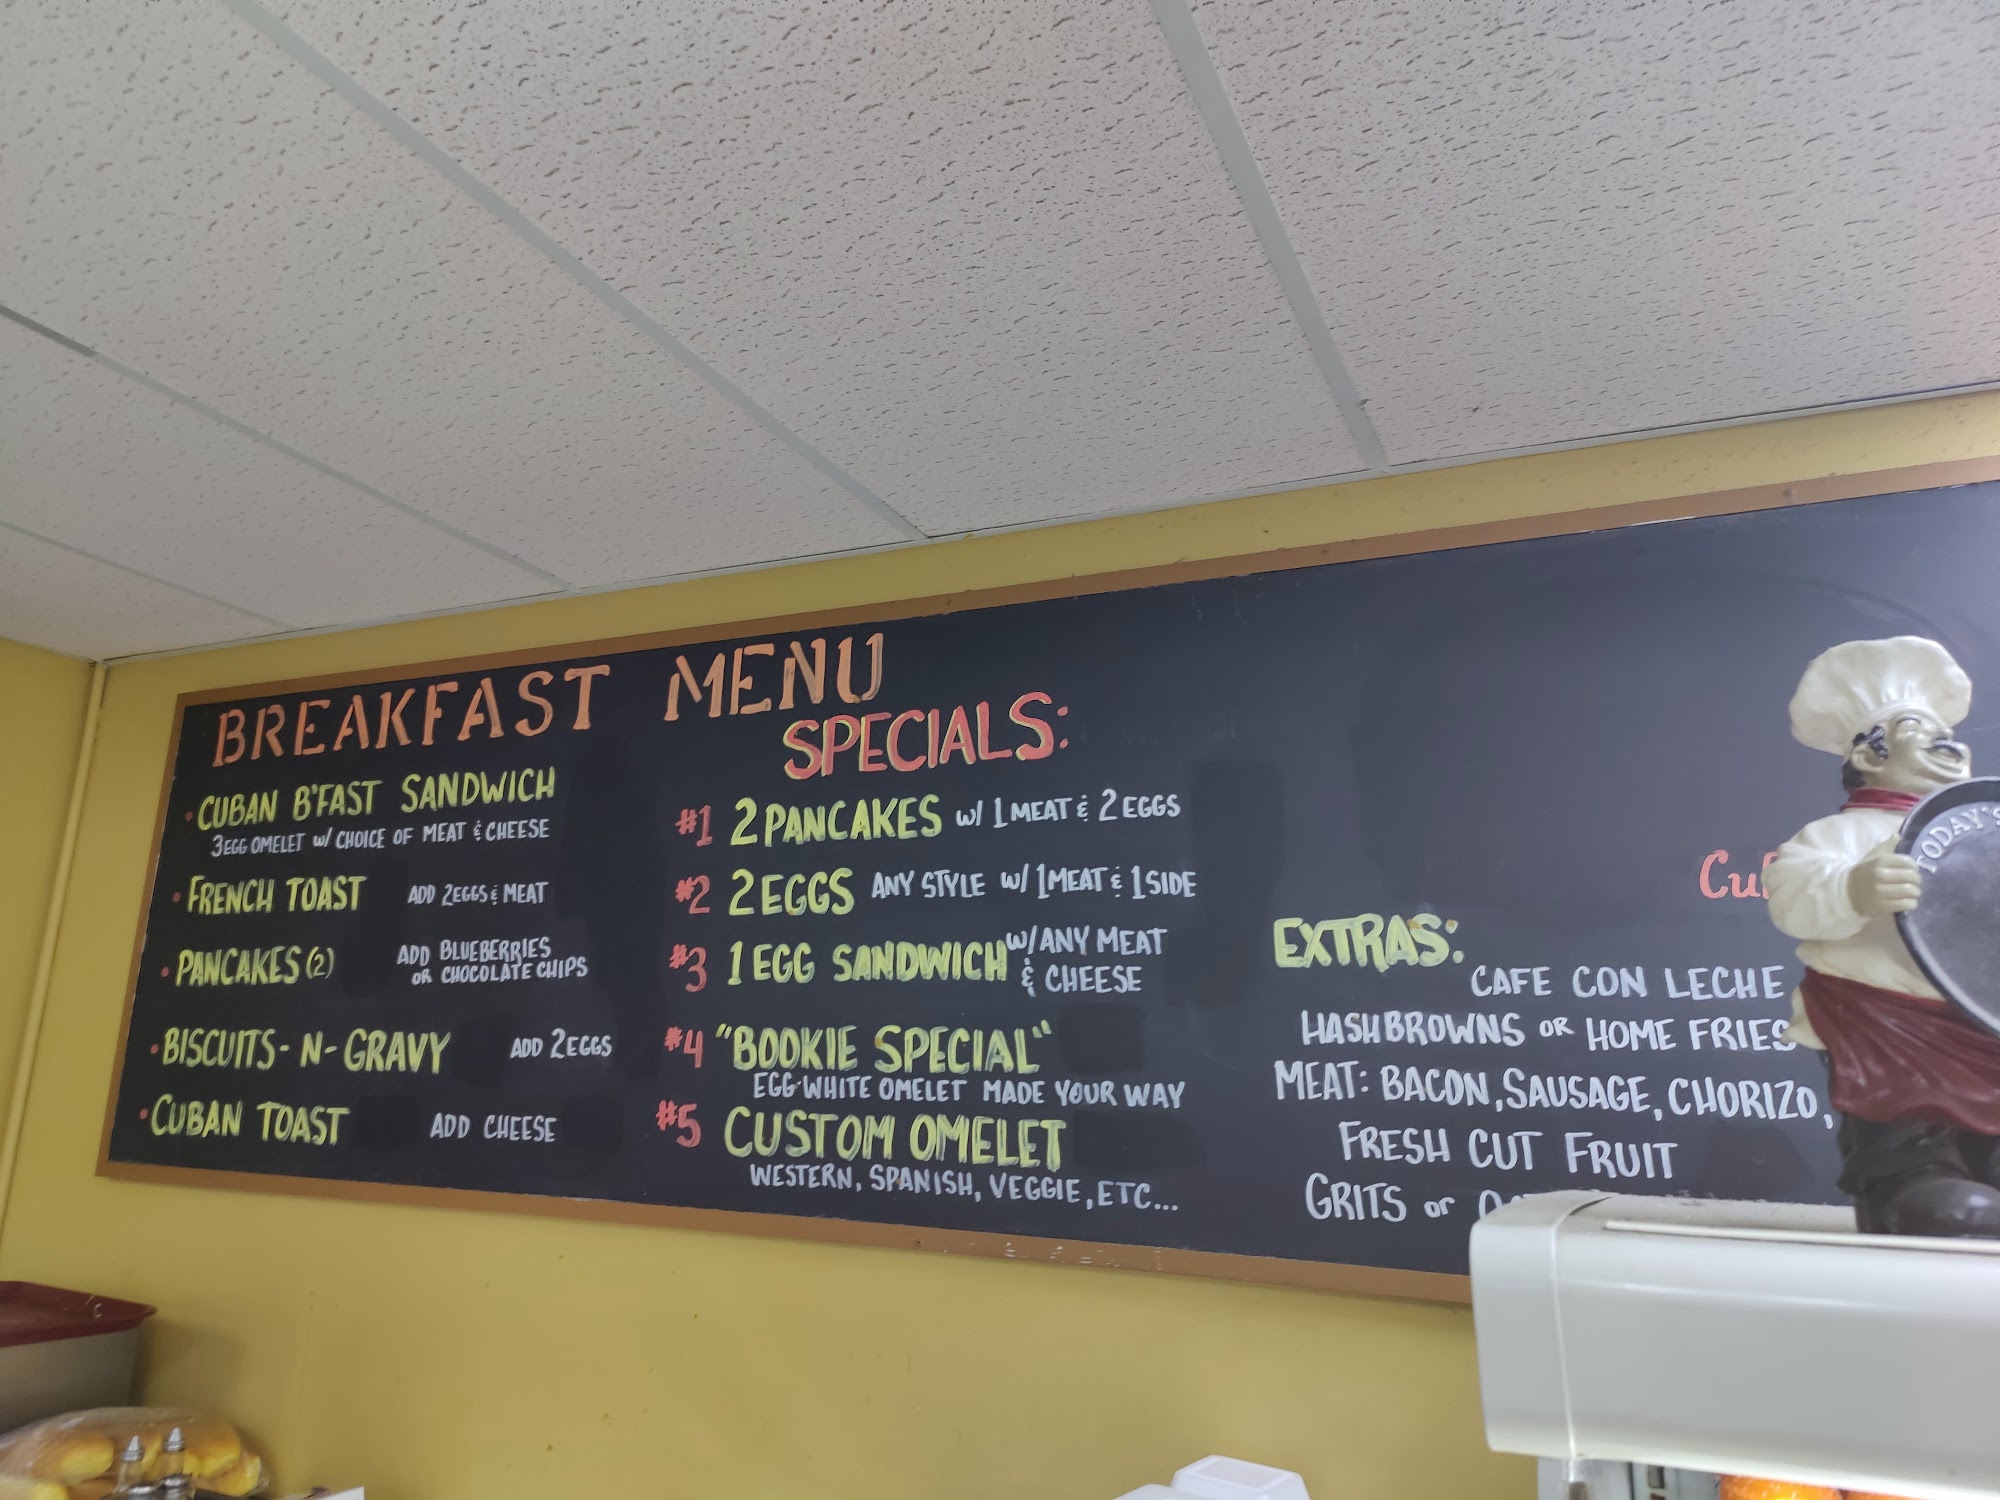 BREAKFAST MENU
• CUBAN B'FAST SANDWICH
3 EGG OMELET w/ CHOICE OF MEAT & CHEESE
• FRENCH TOAST ADD 2 EGGS & MEAT
• PANCAKES (2) ADD BLUEBERRIES
OR CHOCOLATE CHIPS
• BISCUITS-N-GRAVY ADD 2 EGGS
• CUBAN TOAST ADD CHEESE
SPECIALS:
#1 2 PANCAKES w/ 1 MEAT & 2 EGGS
#2 2 EGGS ANY STYLE w/ 1 MEAT & 1 SIDE
#3 1 EGG SANDWICH w/ ANY MEAT
& CHEESE
#4 "BOOKIE SPECIAL"
EGG-WHITE OMELET MADE YOUR WAY
#5 CUSTOM OMELET
WESTERN, SPANISH, VEGGIE, ETC...
EXTRA'S:
CAFE CON LECHE
HASHBROWNS OR HOME FRIES
MEAT: BACON, SAUSAGE, CHORIZO,
FRESH CUT FRUIT
GRITS or
TODAY'S